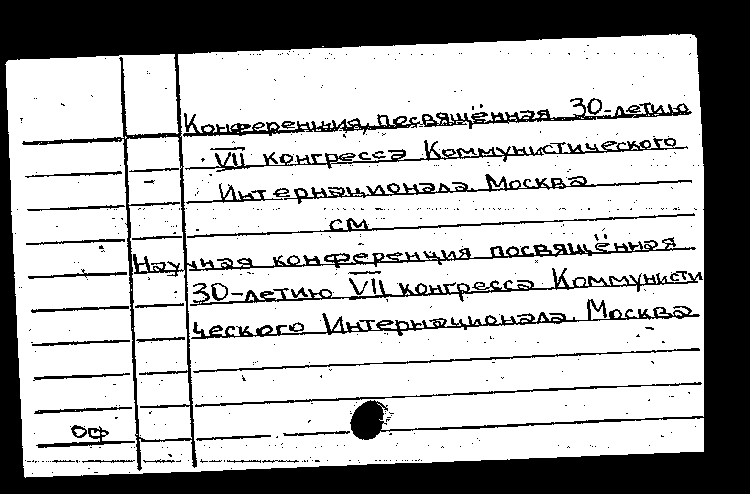 Конференция, посвящённая 30-летию
VII конгресса Коммунистического
Интернационала. Москва
см
Научная конференция посвящённая
30-летию VII конгресса Коммунисти
ческого Интернационала. Москва
оф